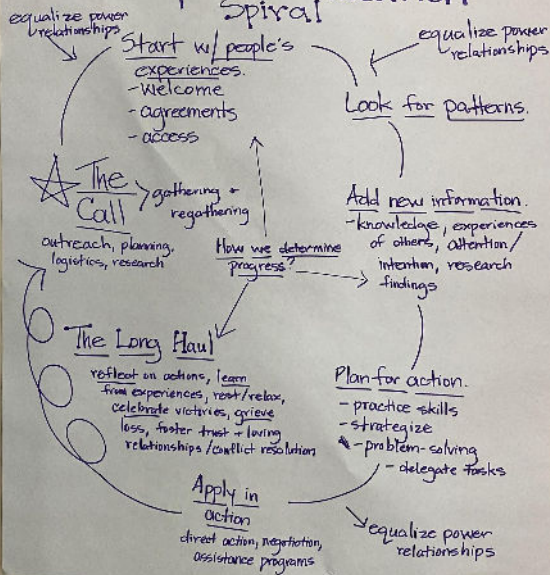 Spiral
equalize power
relationships
Start w/ people's
experiences.
- welcome
- agreements
- access
equalize power
relationships
Look for patterns.
The
Call
gathering +
regathering
outreach, planning,
logistics, research
Add new information.
- knowledge, experiences
of others, attention/
intention, research
findings
How we determine
progress?
The Long Haul
reflect on actions, learn
from experiences, rest/relax,
celebrate victories, grieve
loss, foster trust + loving
relationships/conflict resolution
Plan for action.
- practice skills
- strategize
- problem-solving
- delegate tasks
Apply in
action
direct action, negotiation,
assistance programs
equalize power
relationships